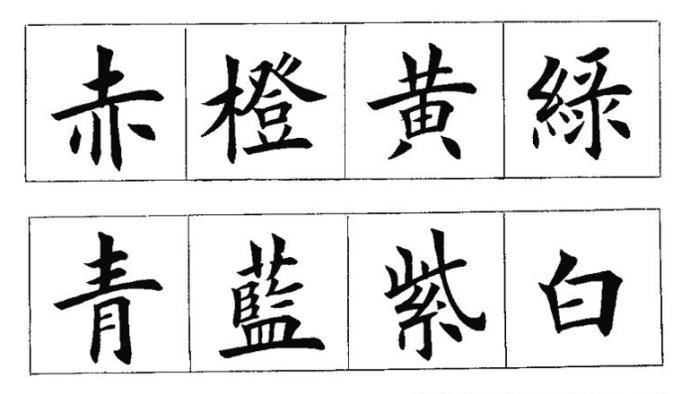 赤橙黄綠
青藍紫白